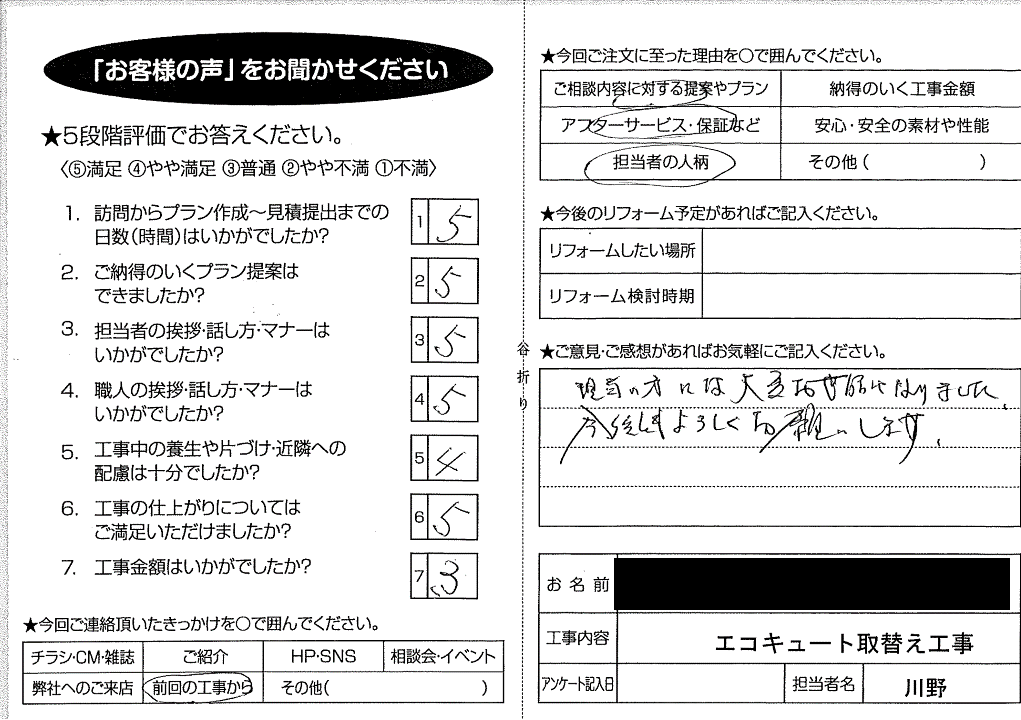 「お客様の声」をお聞かせください
★5段階評価でお答えください。
〈⑤満足 ④やや満足 ③普通 ②やや不満 ①不満〉
1. 訪問からプラン作成～見積提出までの
日数(時間)はいかがでしたか?
1 5
2. ご納得のいくプラン提案は
できましたか?
2 5
3. 担当者の挨拶・話し方・マナーは
いかがでしたか?
3 5
4. 職人の挨拶・話し方・マナーは
いかがでしたか?
4 5
5. 工事中の養生や片づけ・近隣への
配慮は十分でしたか?
5 4
6. 工事の仕上がりについては
ご満足いただけましたか?
6 5
7. 工事金額はいかがでしたか?
7 3
★今回ご連絡頂いたきっかけを○で囲んでください。
チラシ・CM・雑誌 ご紹介 HP・SNS 相談会・イベント
弊社へのご来店 前回の工事から その他( )
谷折り
★今回ご注文に至った理由を○で囲んでください。
ご相談内容に対する提案やプラン 納得のいく工事金額
アフターサービス・保証など 安心・安全の素材や性能
担当者の人柄 その他( )
★今後のリフォーム予定があればご記入ください。
リフォームしたい場所
リフォーム検討時期
★ご意見・ご感想があればお気軽にご記入ください。
担当の方には大変お世話になりました。
今後ともよろしくお願いします。
お名前
工事内容 エコキュート取替え工事
アンケート記入日 担当者名 川野